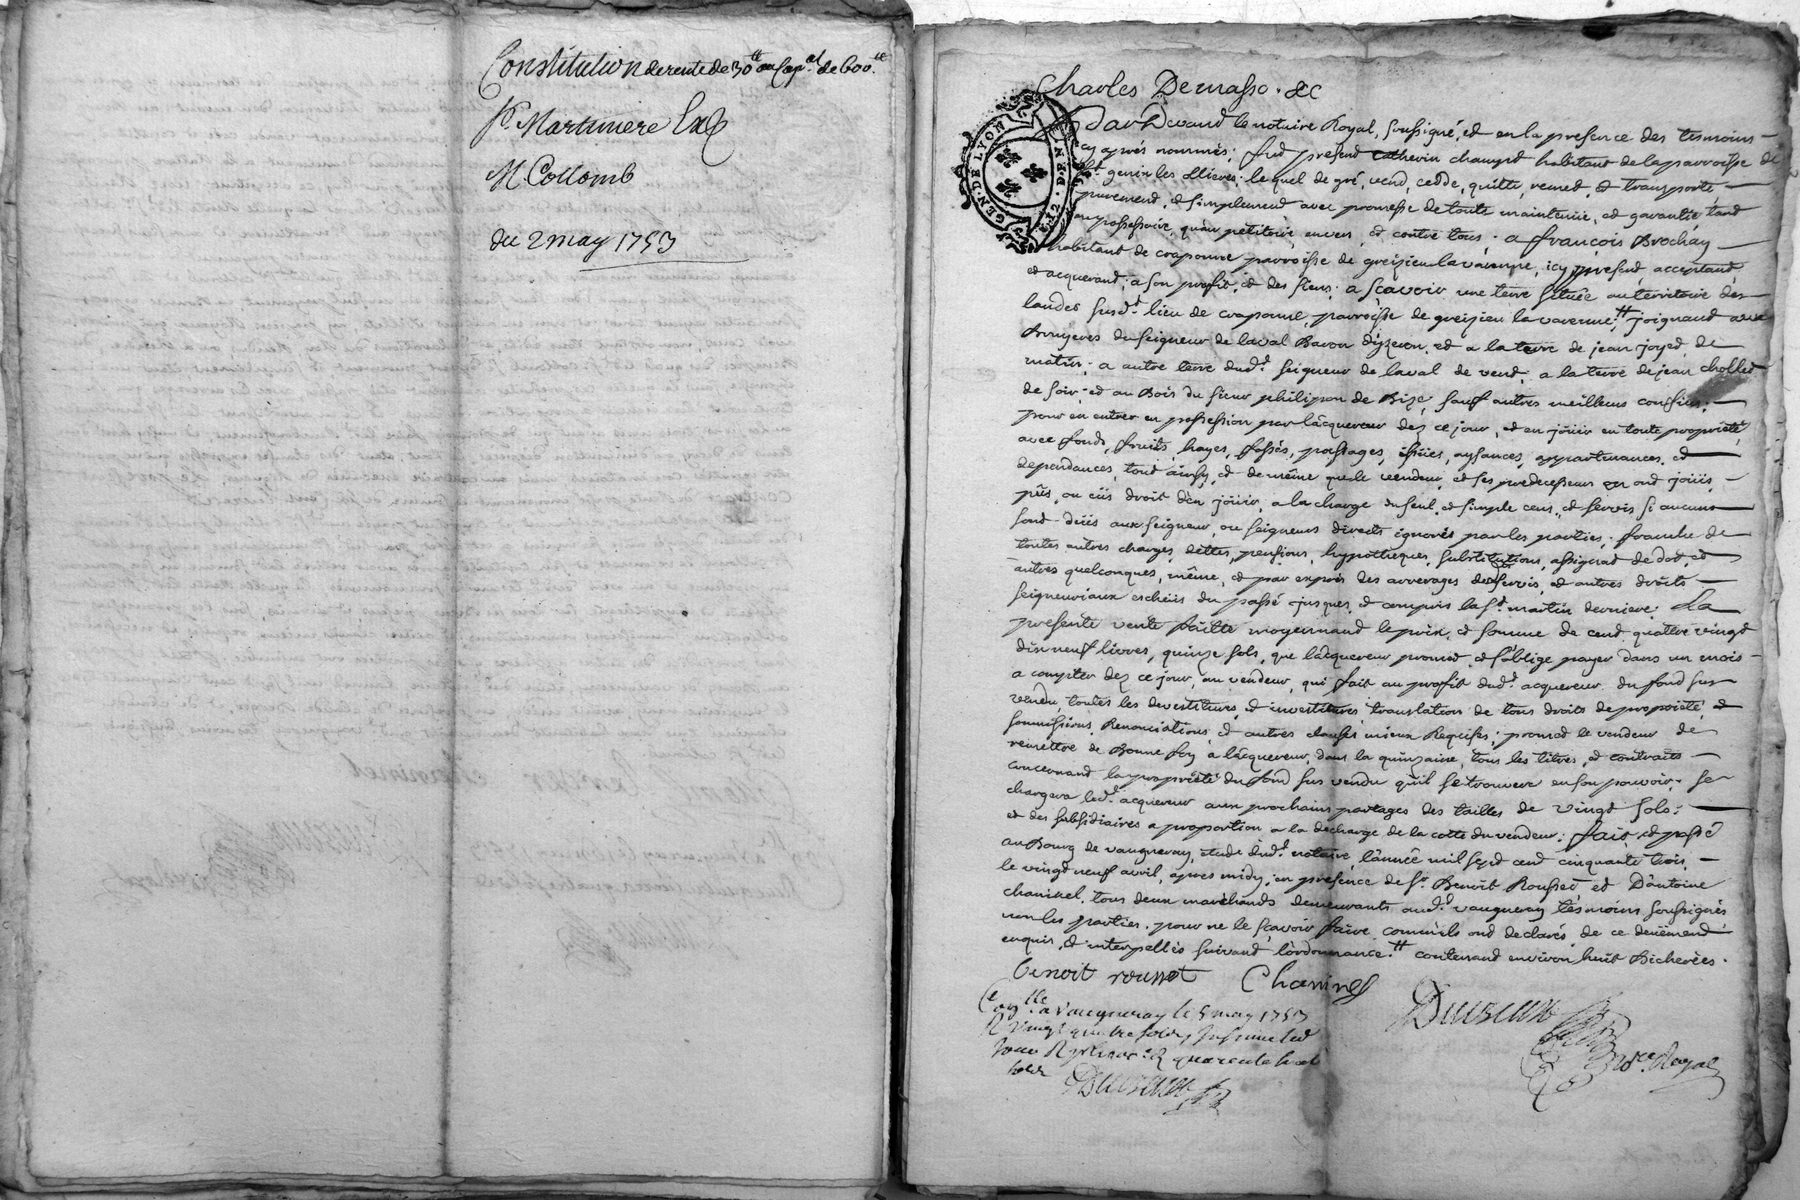 Constitution de rente de 30ᵗᵗ au Cap.ᵃˡ de 600.ᵗᵗ
Martiniere
M Collomb
du 2 may 1753
Charles Demasso. &c
GEN. DE LYON
12. D.
Pardevant le notaire Royal, soussigné, et en la presence des tesmoins
cy après nommés; fut present Catherin habitant de la parroisse de
Sᵗ genis les ollieres; lequel de gré, vend, cedde, quitte, remet, et transporte
purement, et simplement avec promesse de toute maintenüe, et garantie, tant
au possessoire, qu'au petitoire, envers, et contre tous; a françois Brochay
habitant de craponne parroisse de greizieu la varenne, icy present, acceptant
et acquerant; a son profit, et des siens; a scavoir une terre scituée au territoire des
landes susd.ᵗ lieu de craponne, parroisse de greizieu la varenne, # joignant aux
Bruyeres du seigneur de laval Baron d'yzeron, et a la terre de jean joyet, de
matin; a autre terre dud.ᵗ seigneur de laval de vent; a la terre de jean chollet
de soir; et au Bois du sieur philipon de Bize, sauf autres meilleurs confins.
pour en entrer en possession par l'acquereur dez ce jour, et en joüir en toute propriété,
avec fonds, fruits, hayes, fossés, passages, issües, aysances, appartenances, et
dependances, tout ainsy, et de même que le vendeur, et ses predecesseurs en ont joüis,
pûs, ou eüs droit d'en joüir, a la charge du seul, et simple cens, et servis si aucuns
sont düs aux seigneur, ou seigneurs directs ignorés par les parties; franche de
toutes autres charges, dettes, pensions, hypotheques, substitutions, assignat de dot, et
autres quelconques, même, et par exprès des arrerages de servis, et autres droits
seigneuriaux escheüs du passé jusques, et compris la Sᵗ martin derniere. La
presente vente faitte moyennant le prix, et somme de cent quatre vingt
dix neuf livres, quinze sols, que l'acquereur promet, et s'oblige payer dans un mois
a compter dez ce jour, au vendeur, qui fait au profit dud.ᵗ acquereur du fond sus
vendu, toutes les devestitures, et investitures, translation de tous droits de propriété, et
soumissions, Renonciations, et autres clauses mieux Requises; promet le vendeur de
remettre de Bonne foy a l'acquereur, dans la quinzaine, tous les titres, et contraits
concernant la propriété du fond sus vendu qu'il se trouvera en son pouvoir. se
chargera led.ᵗ acquereur aux prochains partages des tailles de vingt sols;
et des subsidiaires a proportion a la decharge de la cotte du vendeur; fait, et passé
au Bourg de vaugneray, etude dud.ᵗ notaire, l'année mil sept cent cinquante trois,
le vingt neuf avril, après midy, en presence de Sʳ Benoit Rousset et D'antoine
chaninel, tous deux marchands demeurants aud.ᵗ vaugneray tesmoins soussignés
non les parties, pour ne le scavoir faire, comm'ils ont declarés, de ce deüement
enquis, et interpellés suivant l'ordonnance. # contenant environ huit Bicherées.
benoit rousset Chaninel
a vaugneray le 5 may 1753
R vingt quatre sols
quarante huit
sols
nᵒʳᵉ Royal